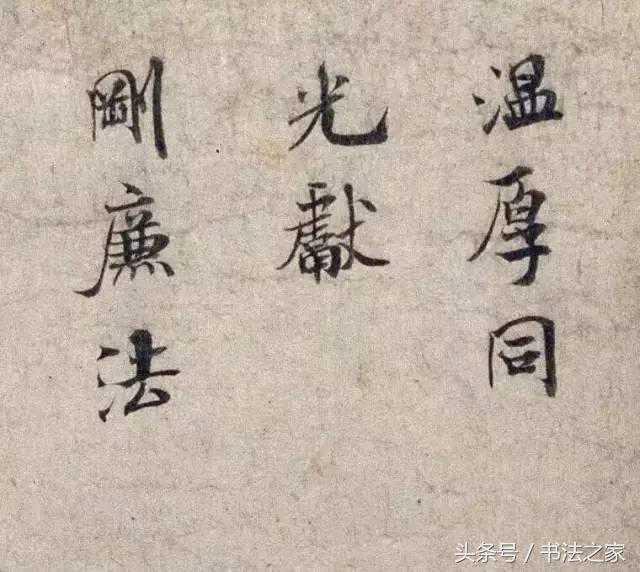 温厚同
光獻
剛廉法
头条号 / 书法之家